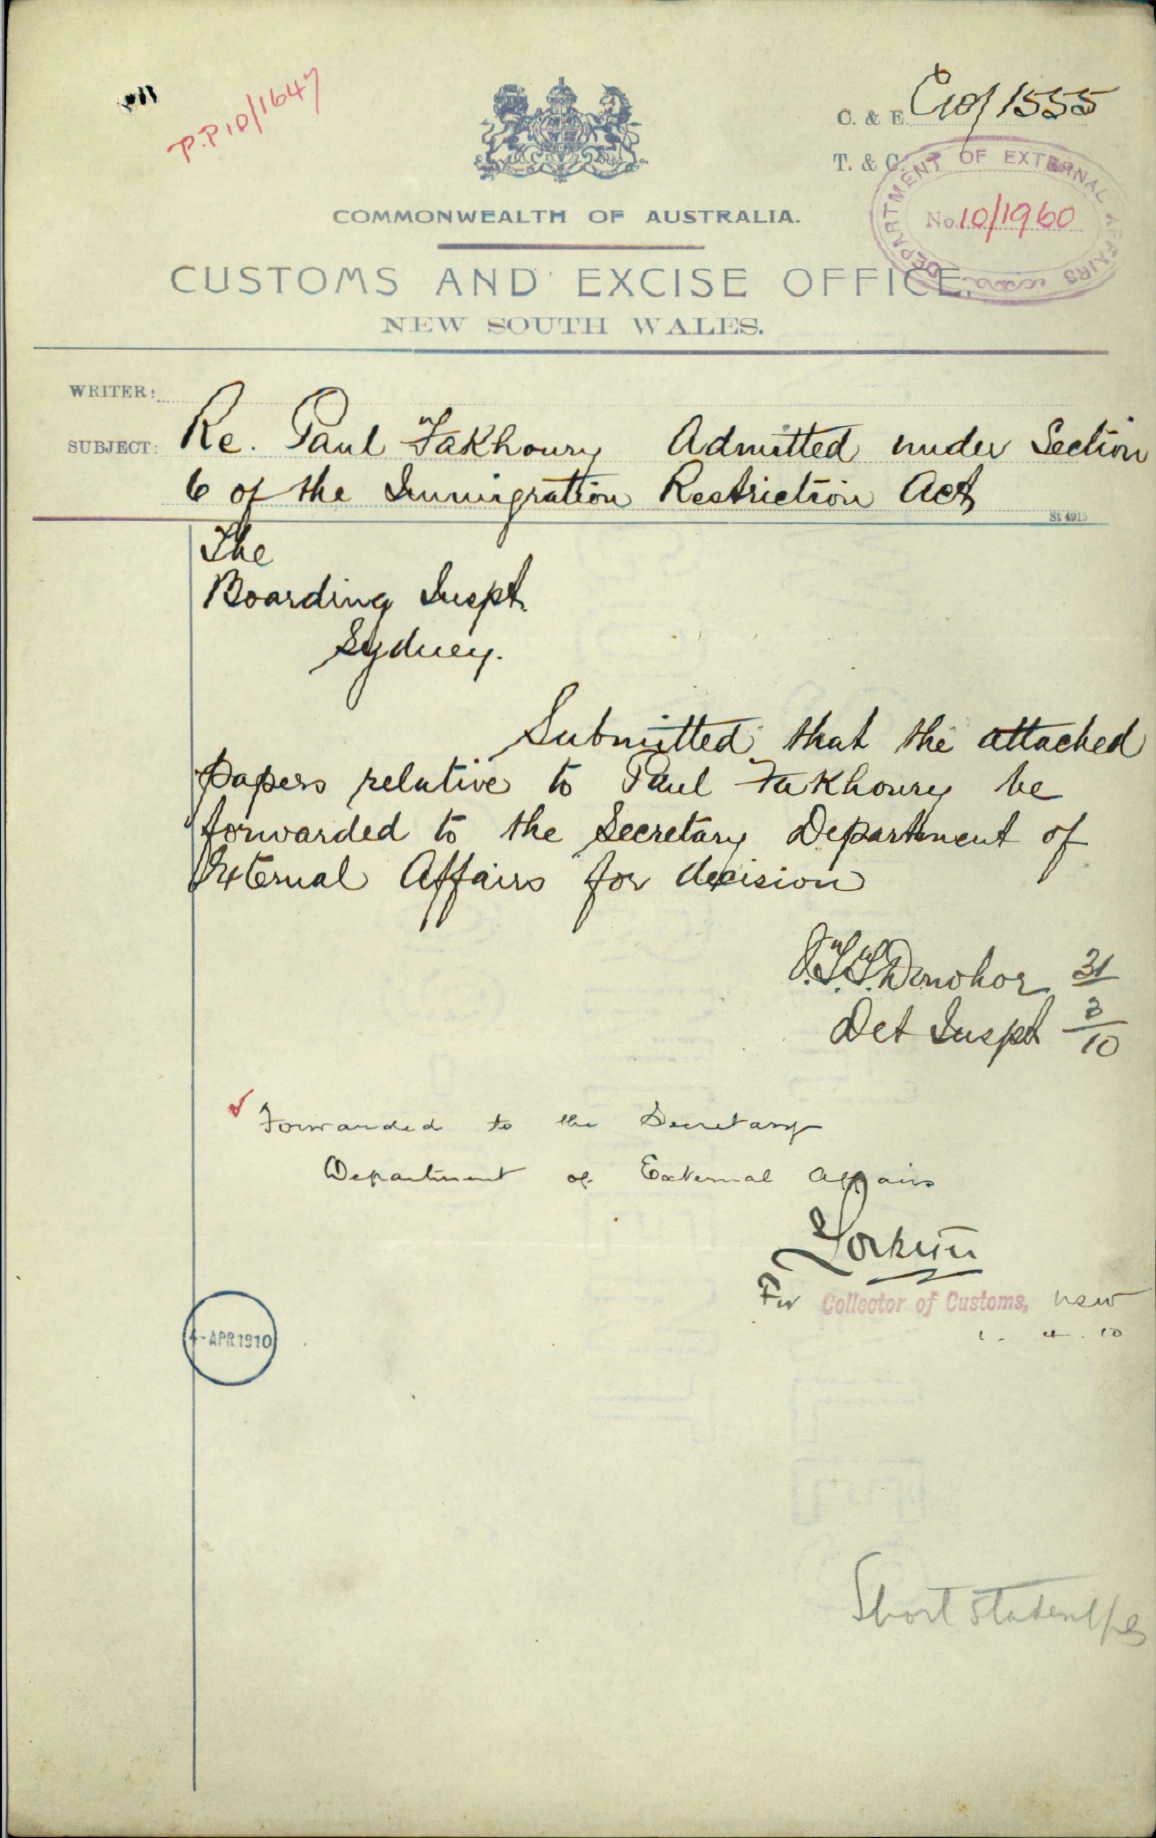 P.P 10/1647
C. & E. C10/1555
T. & C.
DEPARTMENT OF EXTERNAL AFFAIRS
No. 10/1960
COMMONWEALTH OF AUSTRALIA.
CUSTOMS AND EXCISE OFFICE,
NEW SOUTH WALES.
WRITER:
SUBJECT: Re. Paul Fakhoury Admitted under Section
6 of the Immigration Restriction Act
St 4915
The
Boarding Inspt.
Sydney.
Submitted that the attached
papers relative to Paul Fakhoury be
forwarded to the Secretary Department of
External Affairs for decision
Donohoe 31
Det Inspt 3/10
Forwarded to the Secretary
Department of External Affairs
For Collector of Customs, NSW
1. 4. 10
4-APR 1910
Short